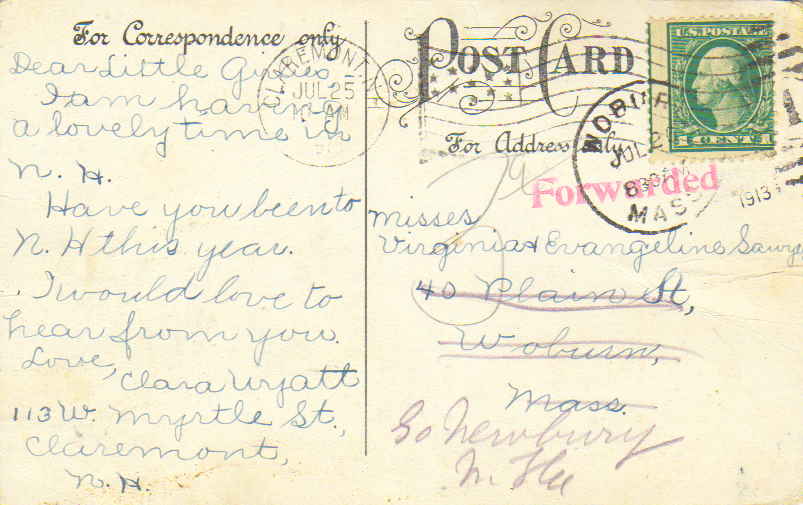 For Correspondence only
Dear Little Girlies
I am having
a lovely time in
N. H.
Have you been to
N. H this year.
I would love to
hear from you.
Love,
Clara Wyatt
113 W. Myrtle St.,
Claremont,
N. H.
CLAREMONT, N.
JUL 25
AM
POST CARD
For Address only
U.S. POSTAGE
1 CENT 1
WOBURN
JUL 2
830
MASS
1913
Forwarded
Misses
Virginia & Evangeline Sawye
40 Plain St,
Woburn,
Mass.
So Newbury
N. H